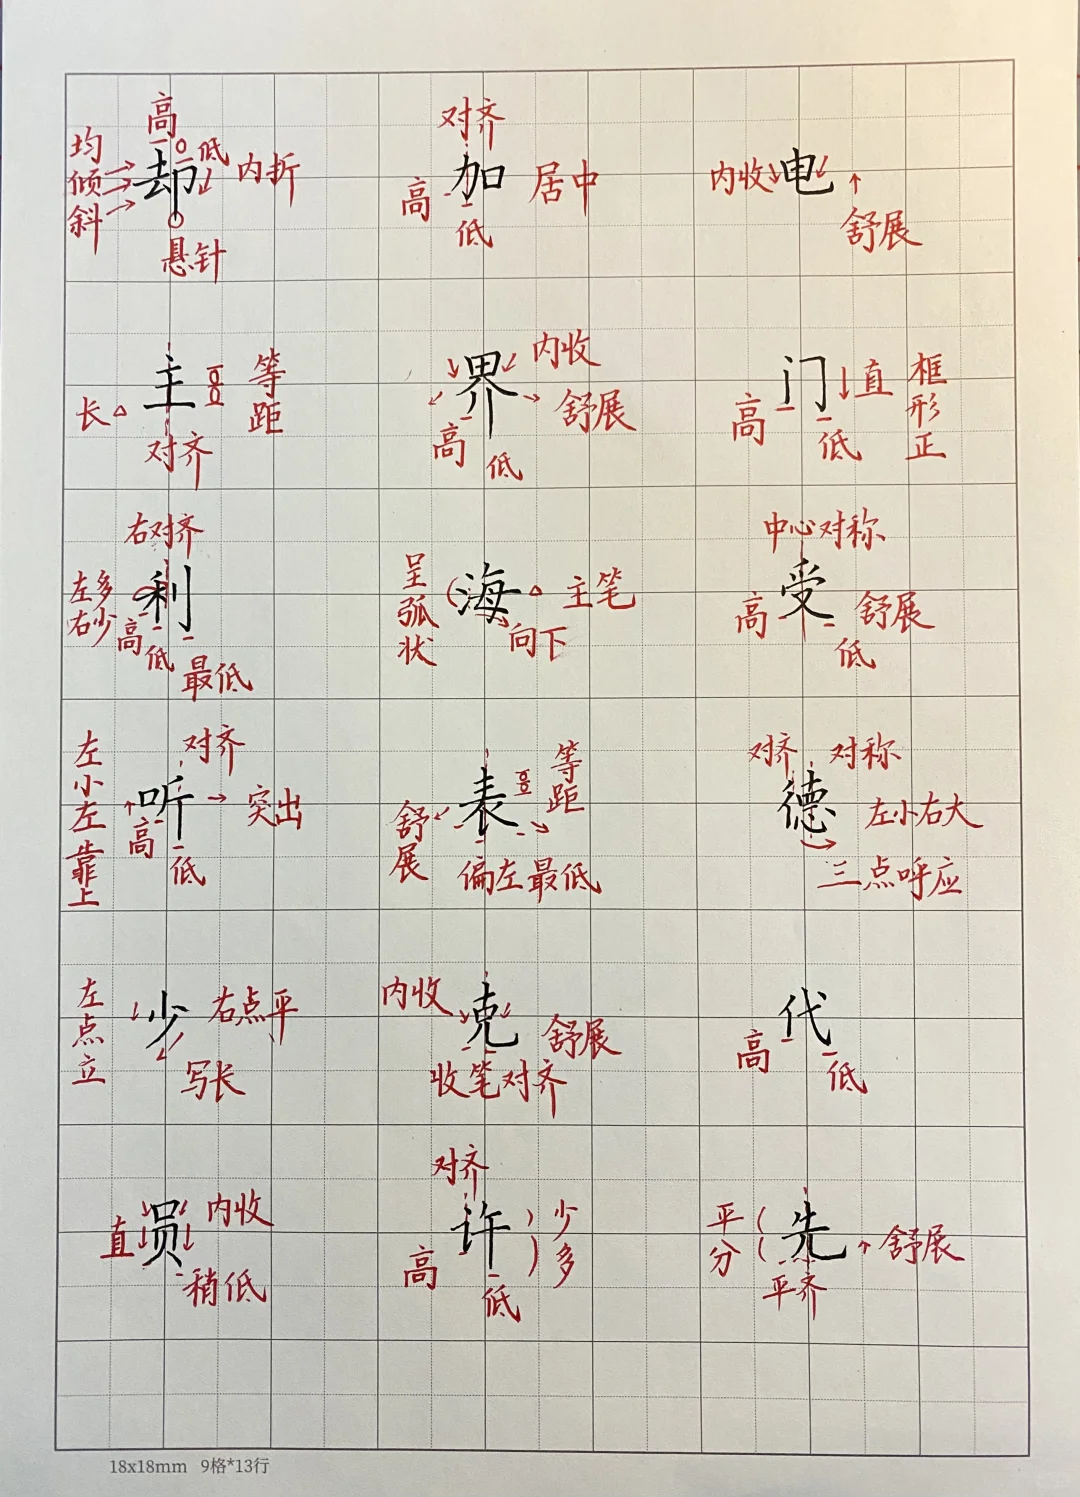 高 对齐
均倾斜 却 低 内折 高 加 居中 内收 电
悬针 低 舒展
主 等距 界 内收 门 直 框形正
长 舒展 高
对齐 高 低 低
右对齐 中心对称
左多右少 利 呈弧状 海 主笔 高 受 舒展
高 低 最低 向下 低
左小左靠上 对齐 等距 对齐 对称
听 突出 舒展 表 德 左小右大
高 低 偏左最低 三点呼应
左点立 少 右点平 内收 克 舒展 代
写长 收笔对齐 高 低
对齐
直 员 内收 高 许 少多 平分 先 舒展
稍低 低 平齐
18x18mm 9格*13行